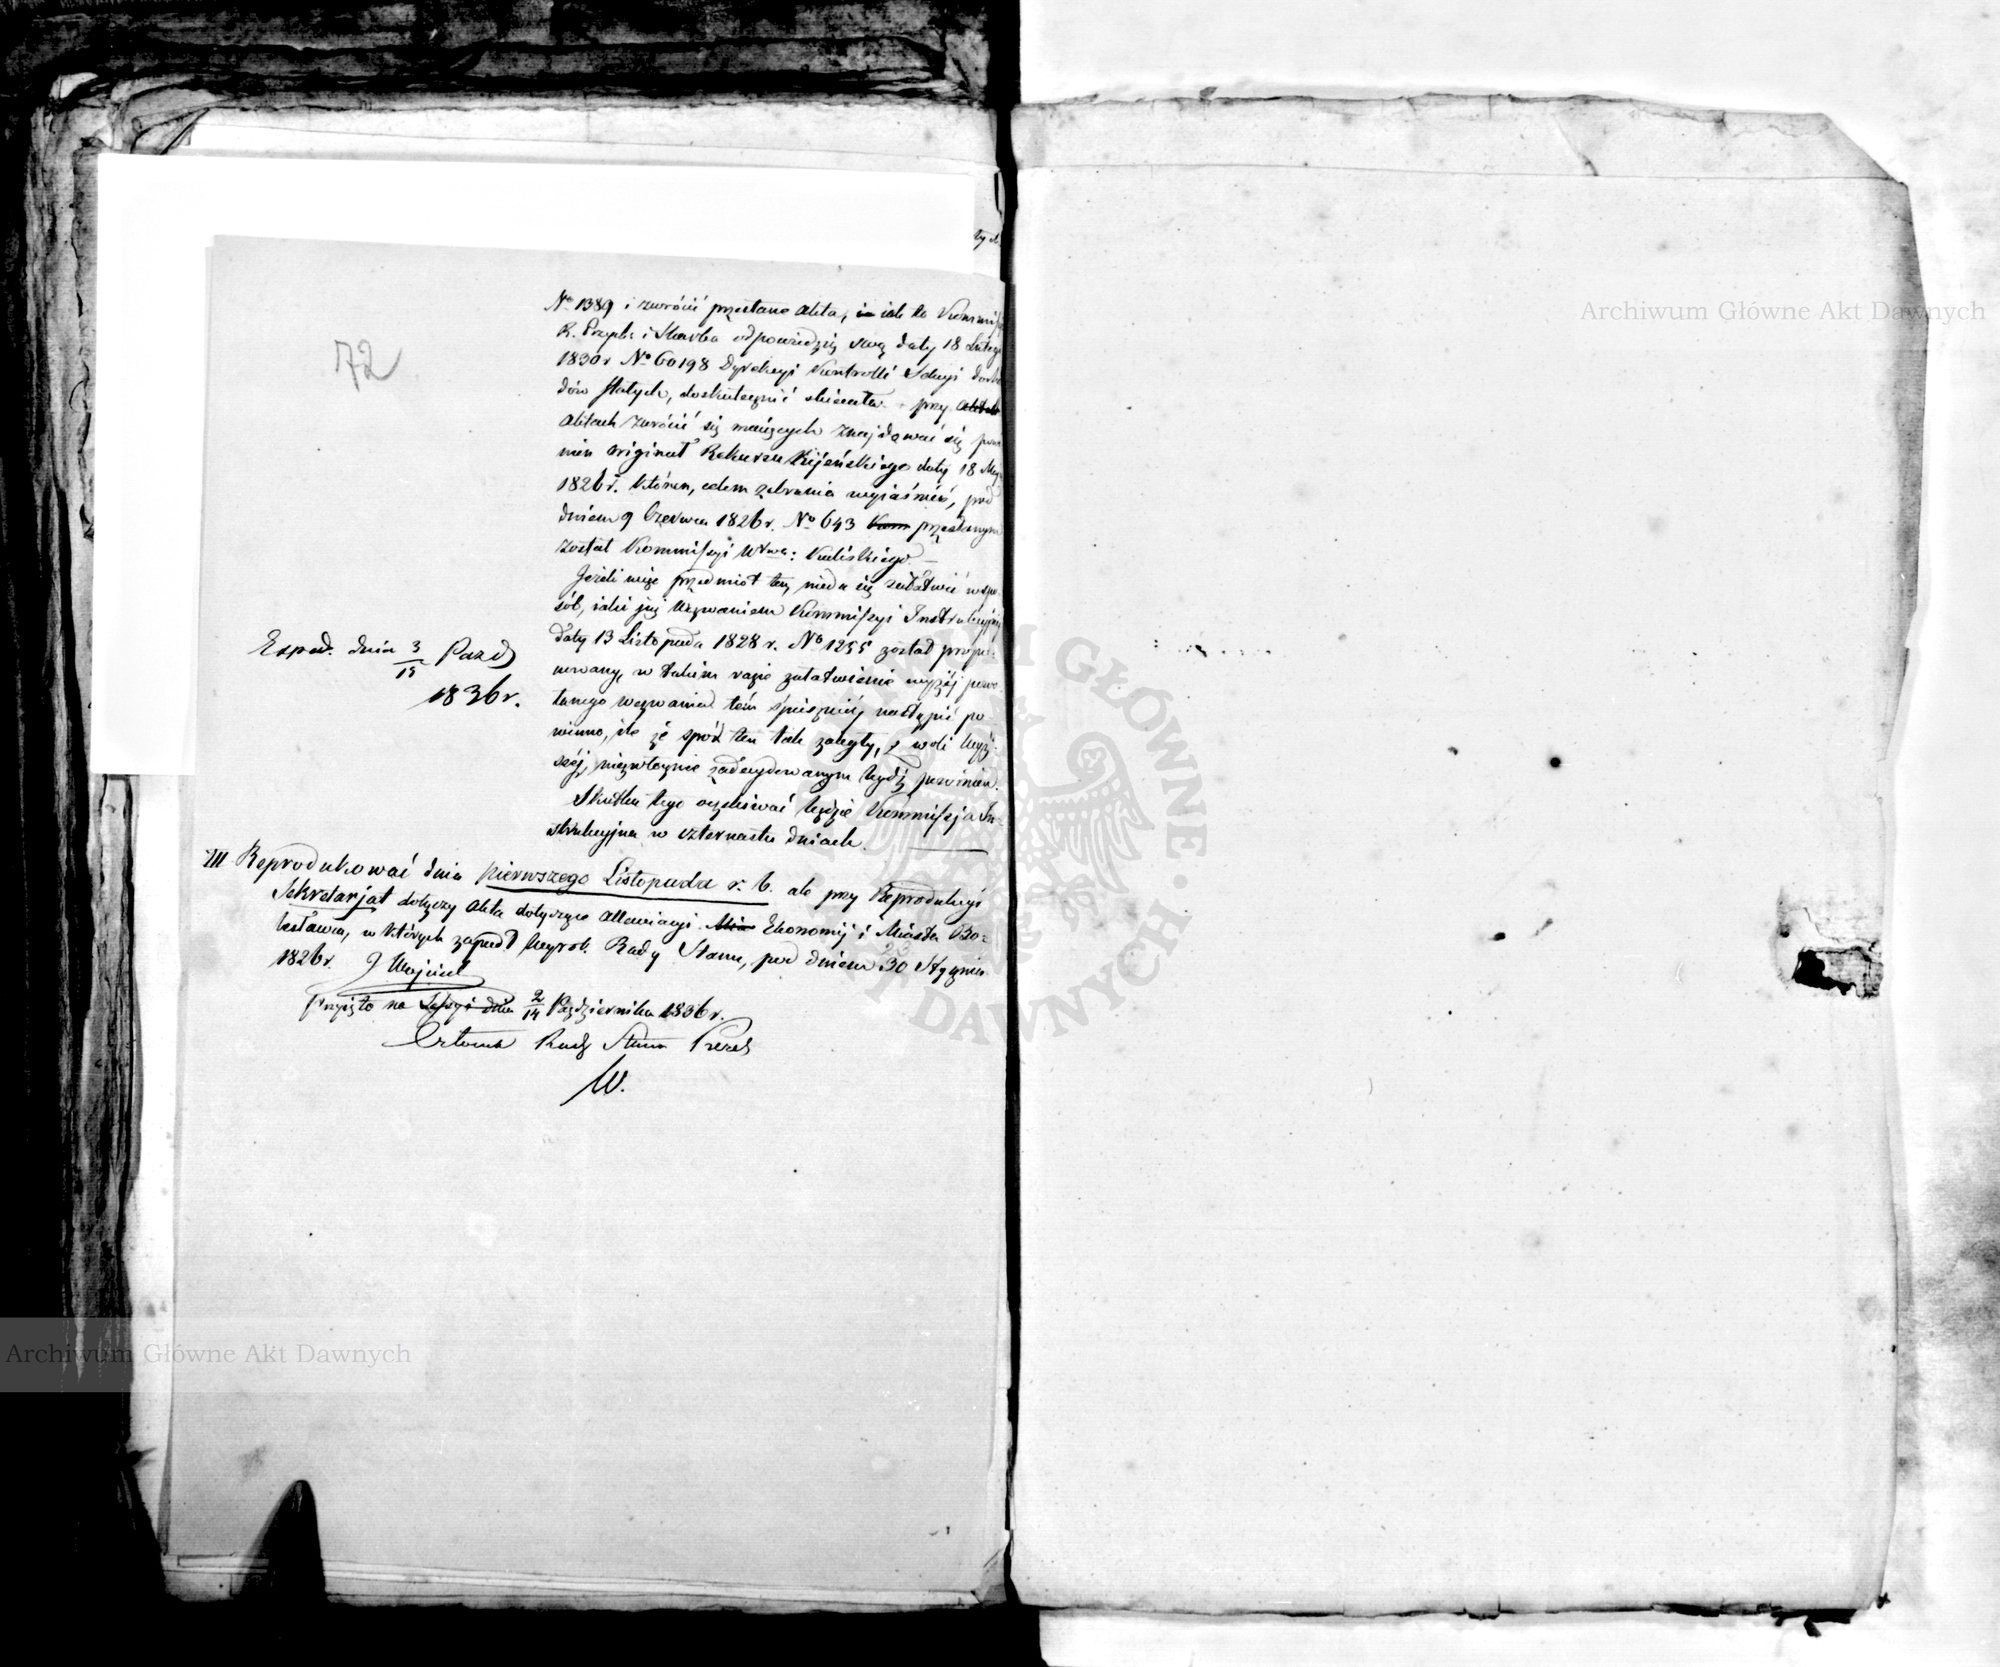 72
No 1389 i zwrócić przesłane akta, jak to Kommis
R. Przych: i Skarbu odpowiedzią swą daty 18 Lutego
1830 r No 60198 Dyrekcyi Kontrolli Sekcyi docho
dów stałych, doskutecznić chciała. przy
aktach zwrócić się mających znajdować się powi
nien originał Rekursu Kijeńskiego daty 18 Maja
1826 r. który, celem zebrania wyjaśnień, pod
dniem 9 Czerwca 1826 r. No 643 przesłanym
został Kommissyi Wtwa: Kaliskiego
Jeżeli więc przedmiot ten nieda się załatwić w spo
sób, jaki już wezwaniem Kommissyi Instrukcyjnej
daty 13 Listopada 1828 r. No 1255 został propo:
nowany, w takim razie załatwienie wyżej powo
łanego wezwania tém śpieszniéj nastąpić po
winno, ile że spór ten tak zaległy, z woli Wyż:
széj, niezwłocznie zadecydowanym bydź powinien.
Skutku tego oczekiwać będzie Kommissja In:
strukcyjna w czternastu dniach.
Exped. dnia 3/15 Pazd
1836 r.
III Reprodukować dnia pierwszego Listopada r. b. ale przy Reprodukcyi
Sekretarjat dołączy akta dotyczące Ekonomij i Miasta Bo:
lesławca, w których zapadł wyrok Rady Stanu, pod dniem 30 Stycznia
1826 r.
Przyięto na Sessyi dnia 2/14 Października 1836 r.
Członek Rady Stanu Prezes
W.
Archiwum Główne Akt Dawnych
Archiwum Główne Akt Dawnych